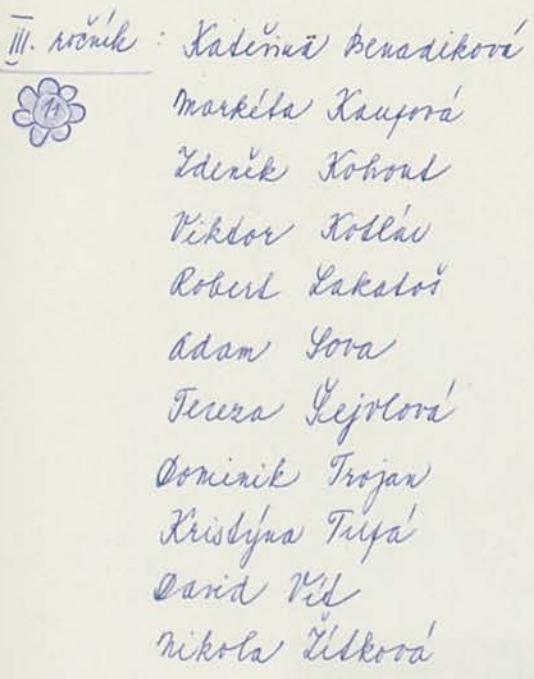 III. ročník : Kateřina Benadiková
11 Markéta Kaufová
Zdeněk Kohout
Viktor Kotlár
Robert Lakatoš
Adam Sova
Tereza Šejvlová
Dominik Trojan
Kristýna
David Vít
Nikola Žítková